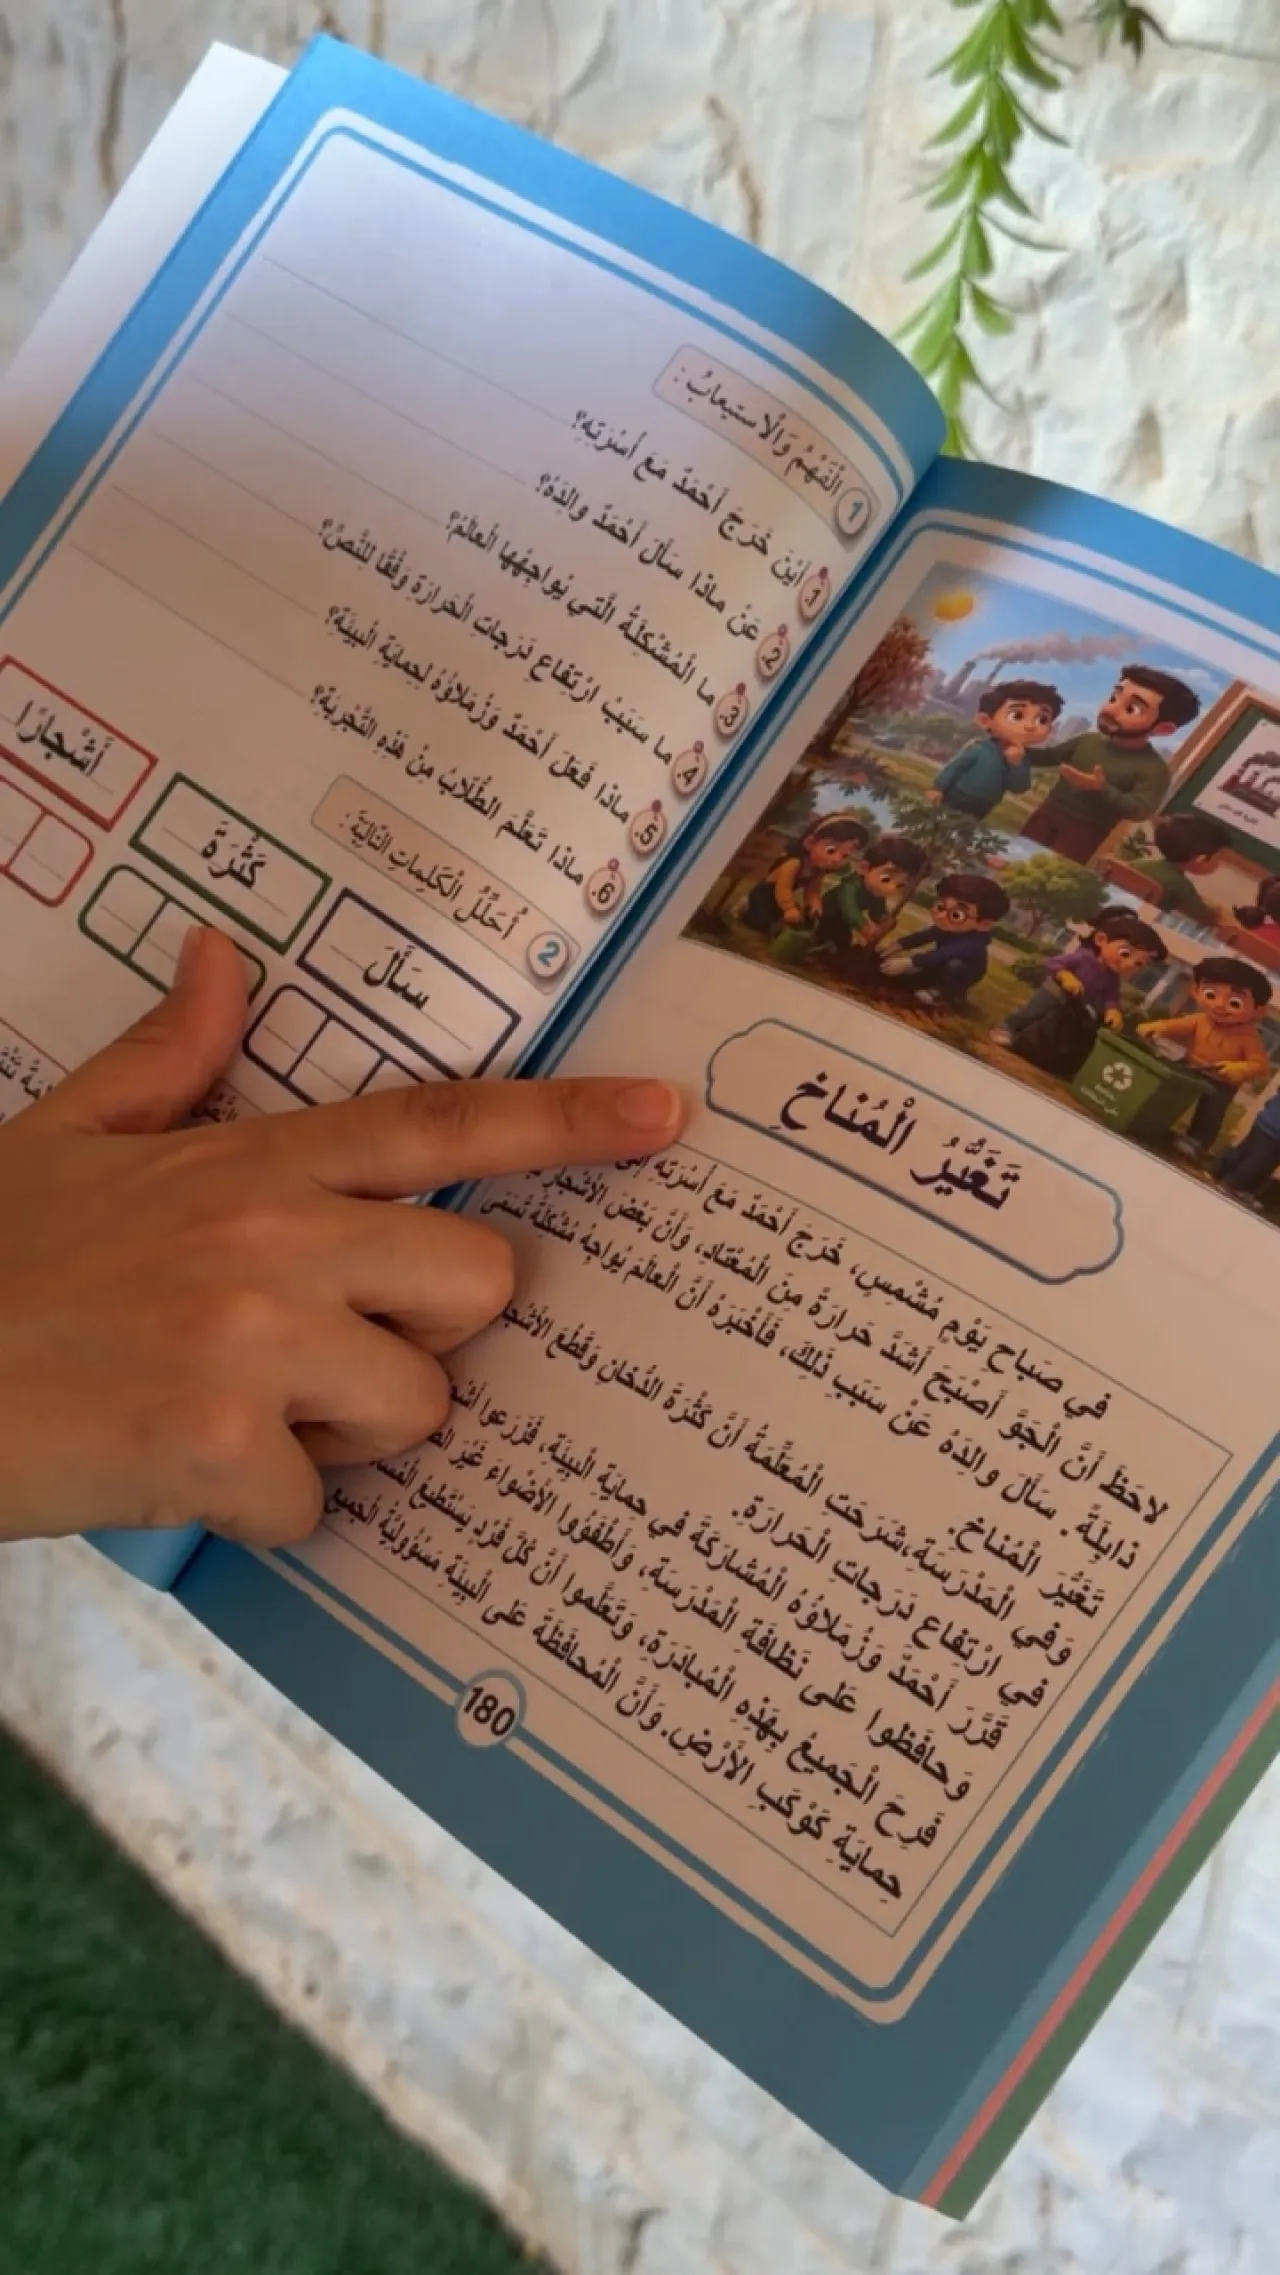 تَغَيُّرُ الْمُناخِ
في صَباحِ يَوْمٍ مُشْمِسٍ، خَرَجَ أَحْمَدُ مَعَ أُسْرَتِهِ إِلى
لاحَظَ أَنَّ الْجَوَّ أَصْبَحَ أَشَدَّ حَرارَةً مِنَ الْمُعْتادِ، وَأَنَّ بَعْضَ الْأَشْجارِ
ذابِلَةٌ. سَأَلَ والِدَهُ عَنْ سَبَبِ ذَلِكَ، فَأَخْبَرَهُ أَنَّ الْعالَمَ يُواجِهُ مُشْكِلَةً تُسَمّى
تَغَيُّرَ الْمُناخِ.
وَفي الْمَدْرَسَةِ،شَرَحَتِ الْمُعَلِّمَةُ أَنَّ كَثْرَةَ الدُّخانِ وَقَطْعَ
في ارْتِفاعِ دَرَجاتِ الْحَرارَةِ.
قَرَّرَ أَحْمَدُ وَزُمَلاؤُهُ الْمُشارَكَةَ في حِمايَةِ الْبيئَةِ، فَزَرَعوا
وَحافَظوا عَلى نَظافَةِ الْمَدْرَسَةِ، وَأَطْفَؤُوا الْأَضْواءَ غَيْرَ
فَرِحَ الْجَميعُ بِهَذِهِ الْمُبادَرَةِ، وَتَعَلَّموا أَنَّ كُلَّ فَرْدٍ يَسْتَطيعُ
حِمايَةِ كَوْكَبِ الْأَرْضِ.وَأَنَّ الْمُحافَظَةَ عَلى الْبيئَةِ مَسْؤُولِيَّةُ الْجَميعِ
180
1 الْفَهْمُ وَالْاسْتيعابُ :
1. أَيْنَ خَرَجَ أَحْمَدُ مَعَ أُسْرَتِهِ؟
2. عَنْ ماذا سَأَلَ أَحْمَدُ والِدَهُ؟
3. ما الْمُشْكِلَةُ الَّتي يُواجِهُها الْعالَمُ؟
4. ما سَبَبُ ارْتِفاعِ دَرَجاتِ الْحَرارَةِ وَفْقًا لِلنَّصِّ؟
5. ماذا فَعَلَ أَحْمَدُ وَزُمَلاؤُهُ لِحِمايَةِ الْبيئَةِ؟
6. ماذا تَعَلَّمَ الطُّلّابُ مِنْ هَذِهِ التَّجْرِبَةِ؟
2 أُحَلِّلُ الْكَلِماتِ التّالِيَةَ :
سَأَلَ
كَثْرَةَ
أَشْجارًا